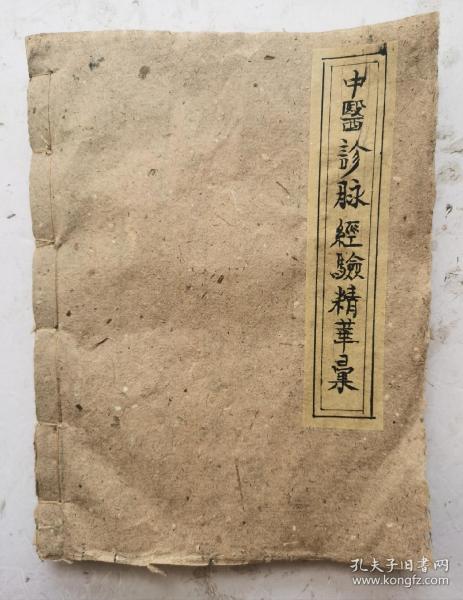 中醫診脉經驗精華彙
孔夫子旧书网
www.kongfz.com